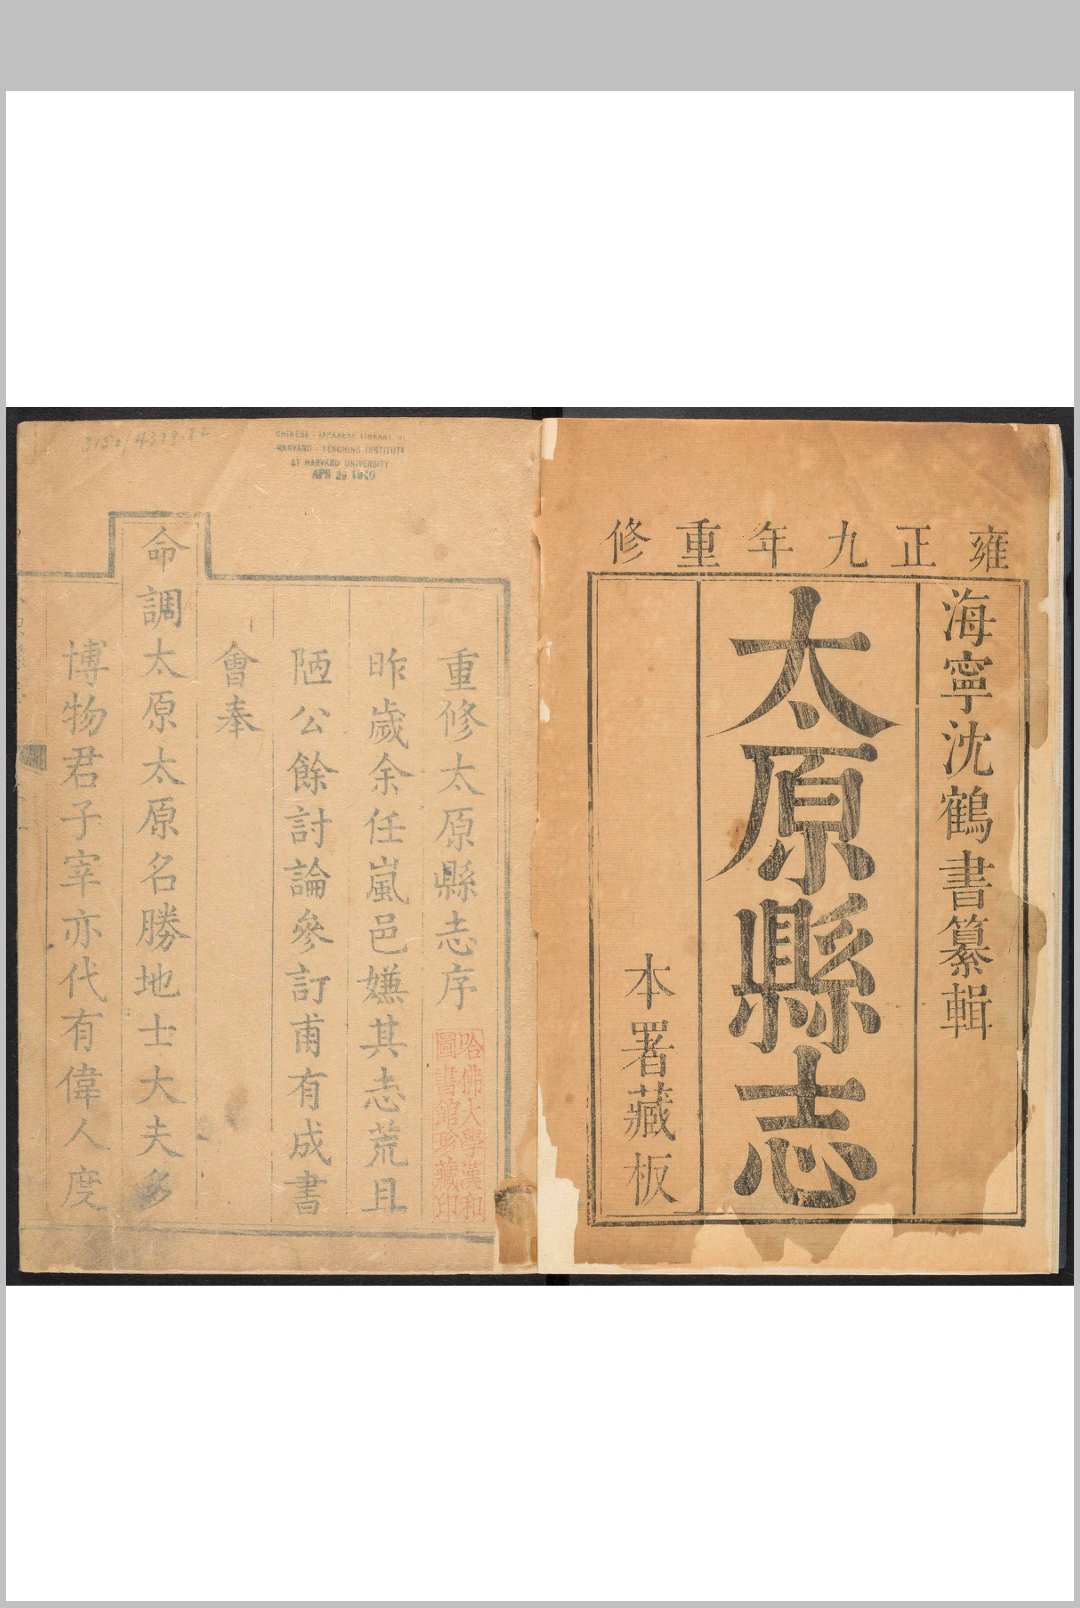 雍正九年重修
海寧沈鶴書纂輯
太原縣志
本署藏板
CHINESE-JAPANESE LIBRARY OF
HARVARD-YENCHING INSTITUTE
AT HARVARD UNIVERSITY
APR 29 1940
重修太原縣志序
哈佛大學漢和
圖書館珍藏印
昨歲余任嵐邑嫌其志荒且
陋公餘討論參訂甫有成書
會奉
命調太原太原名勝地士大夫多
博物君子宰亦代有偉人度